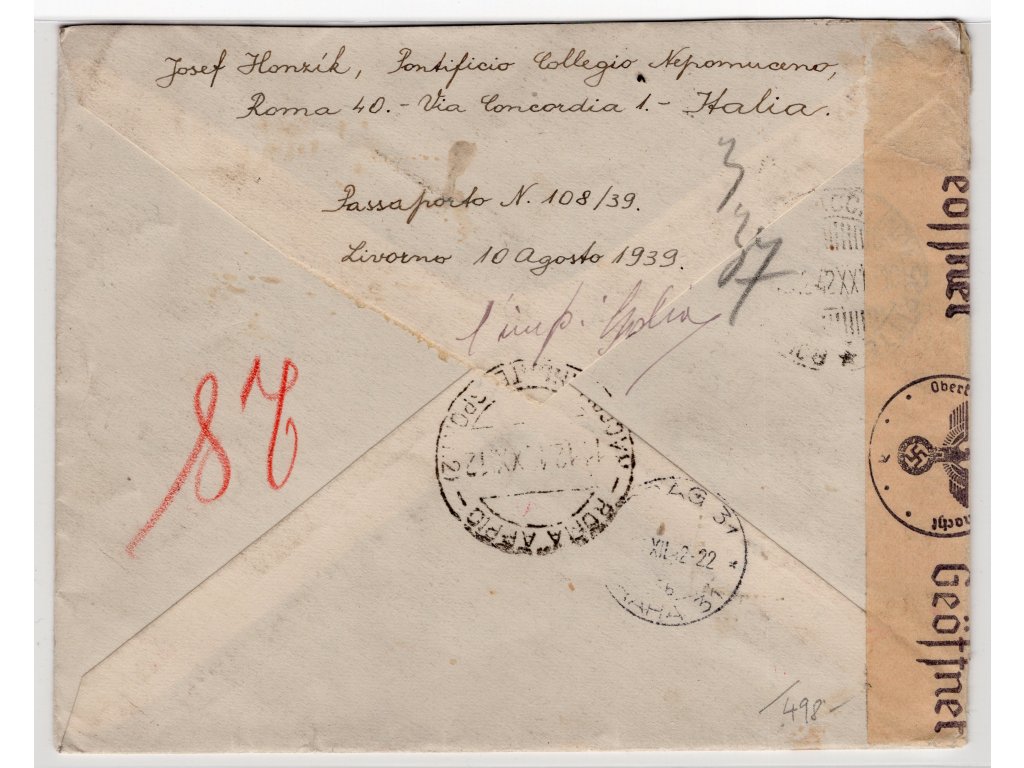 Josef Honzík, Pontificio Collegio Nepomuceno,
Roma 40. - Via Concordia 1. - Italia.
Passaporto N. 108/39.
Livorno 10 Agosto 1939.
l'imp.
37
87
ROMA APPIO
31
XII.42-22
PRAHA 31
Geöffnet
Geöffnet
498-